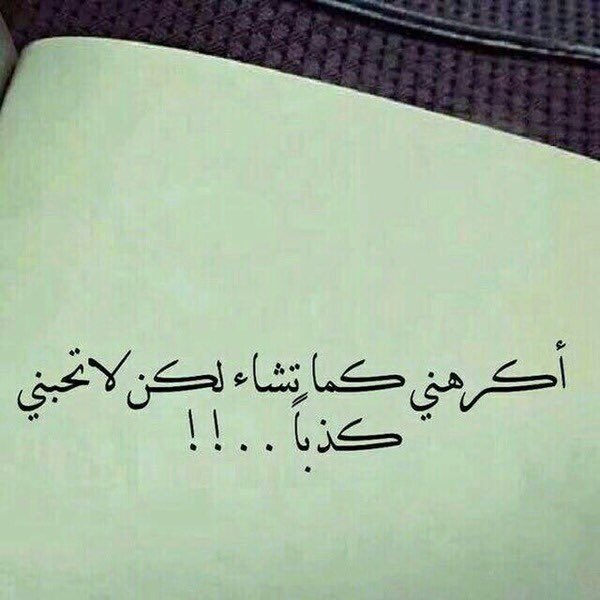 أكرهني كما تشاء لكن لاتحبني
كذباً . . ! !